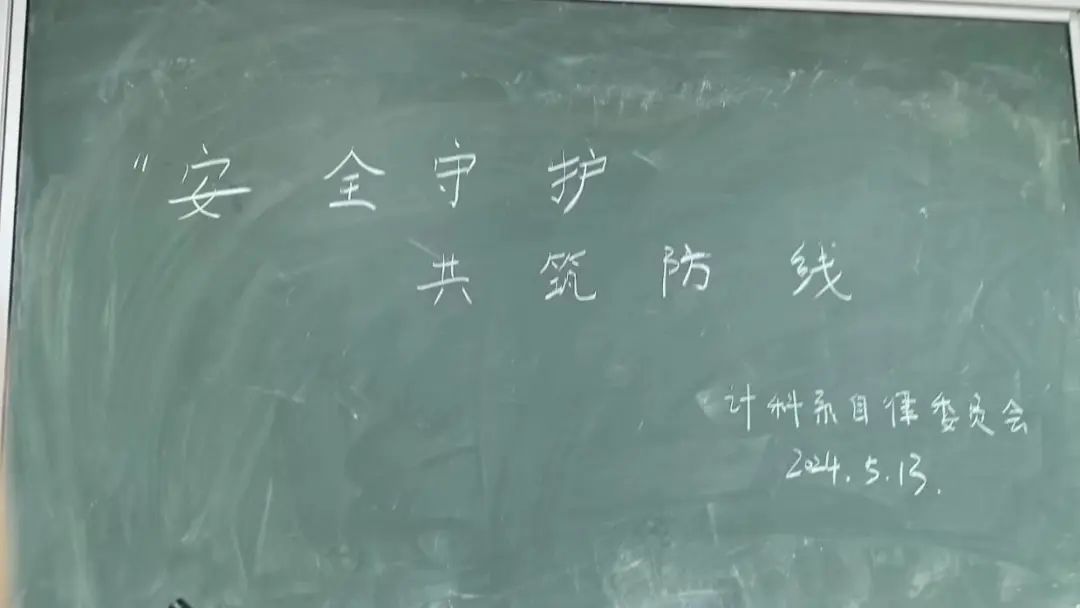 "安全守护
共筑防线
计科系自律委员会
2024.5.13.